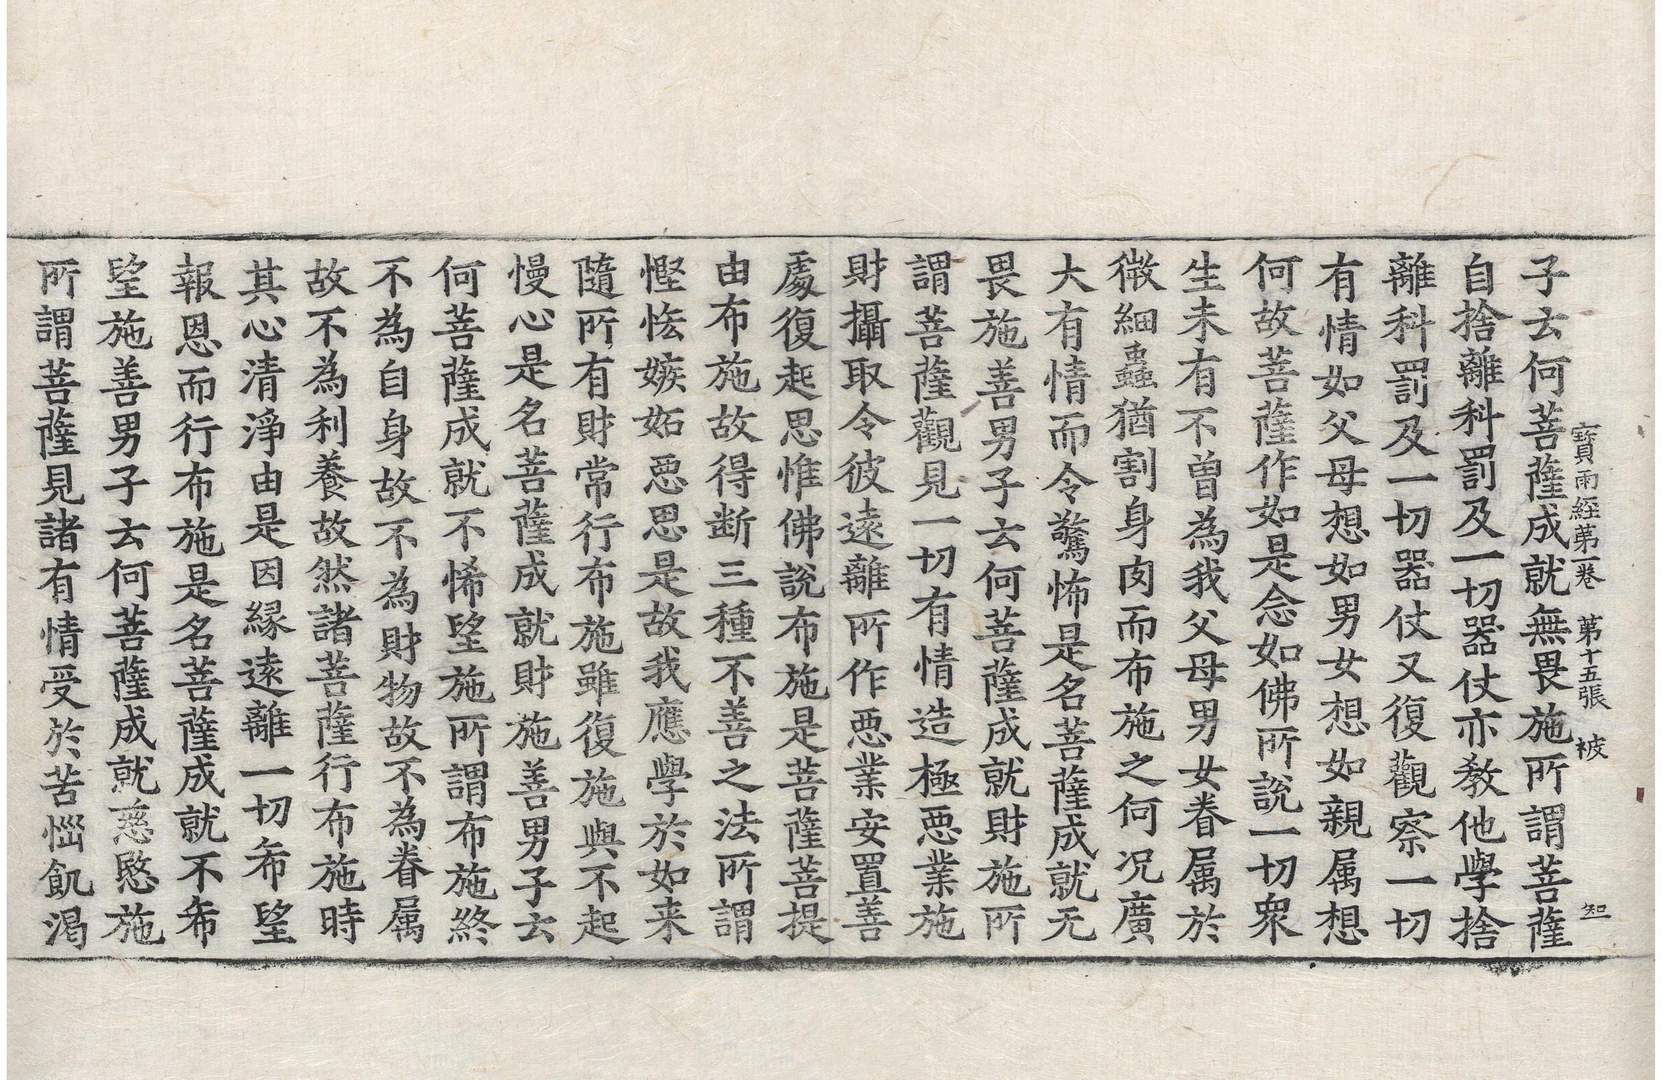 寶雨經苐一卷　第十五張　被　知
子云何菩薩成就無畏施所謂菩薩
自捨離科罰及一切器仗亦教他學捨
離科罰及一切器仗又復觀察一切
有情如父母想如男女想如親属想
何故菩薩作如是念如佛所說一切衆
生未有不曾為我父母男女眷属於
微細蟲猶割身肉而布施之何况廣
大有情而令驚怖是名菩薩成就无
畏施善男子云何菩薩成就財施所
謂菩薩觀見一切有情造極惡業施
財攝取令彼遠離所作惡業安置善
處復起思惟佛說布施是菩薩菩提
由布施故得断三種不善之法所謂
慳悋嫉妬惡思是故我應學於如来
隨所有財常行布施雖復施與不起
慢心是名菩薩成就財施善男子云
何菩薩成就不悕望施所謂布施終
不為自身故不為財物故不為眷属
故不為利養故然諸菩薩行布施時
其心清淨由是因緣遠離一切希望
報恩而行布施是名菩薩成就不希
望施善男子云何菩薩成就慈愍施
所謂菩薩見諸有情受於苦惱飢渴